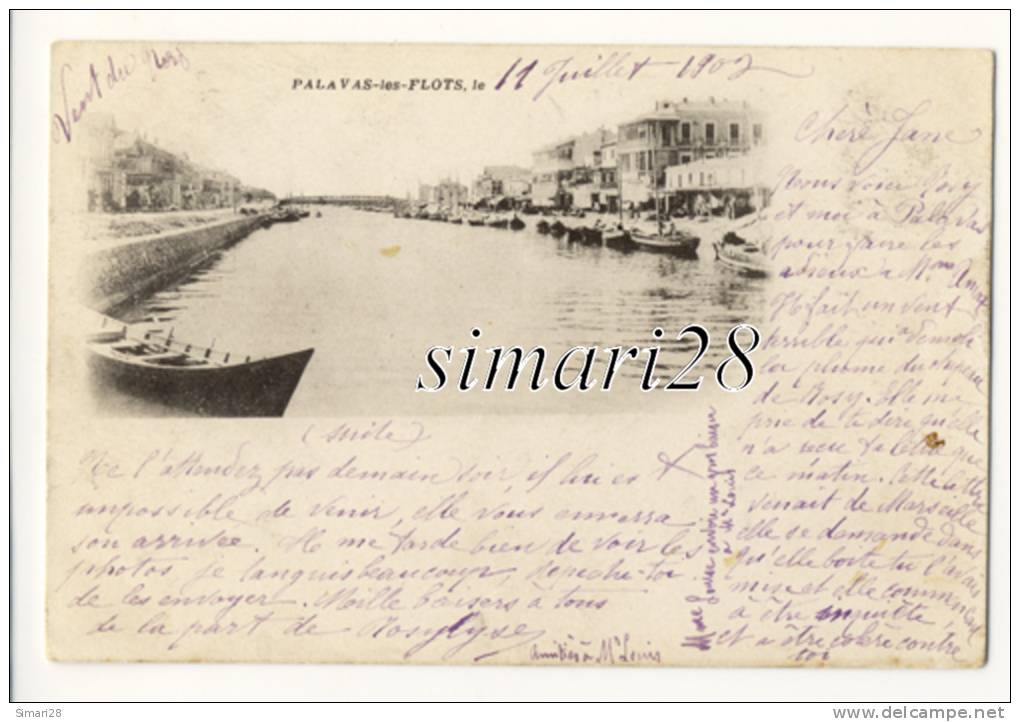 Vent du
PALAVAS-les-FLOTS, le 11 Juillet 1902
Chère Jane
Nous voici Rosy
et moi à Palavas
pour faire les
adieux à Mme
Il fait un vent
terrible qui a démoli
la plume du
de Rosy. Elle me
prie de te dire qu'elle
n'a reçu ta lettre que
ce matin. Cette lettre
venait de Marseille
elle se demande dans
qu'elle boite tu l'avais
mise et elle commençait
à être inquiète,
et à être colère contre
toi
(suite)
Ne l'attendez pas demain soir, il lui est
impossible de venir, elle vous enverra
son arrivée. Il me tarde bien de voir les
photos, je languis beaucoup, dépêche-toi
de les envoyer. Mille baisers à tous
de la part de
Amitiés à Mr Louis
Melle Louise envoie un gros baiser
à Mr Louis
simari28
Simari28
www.delcampe.net